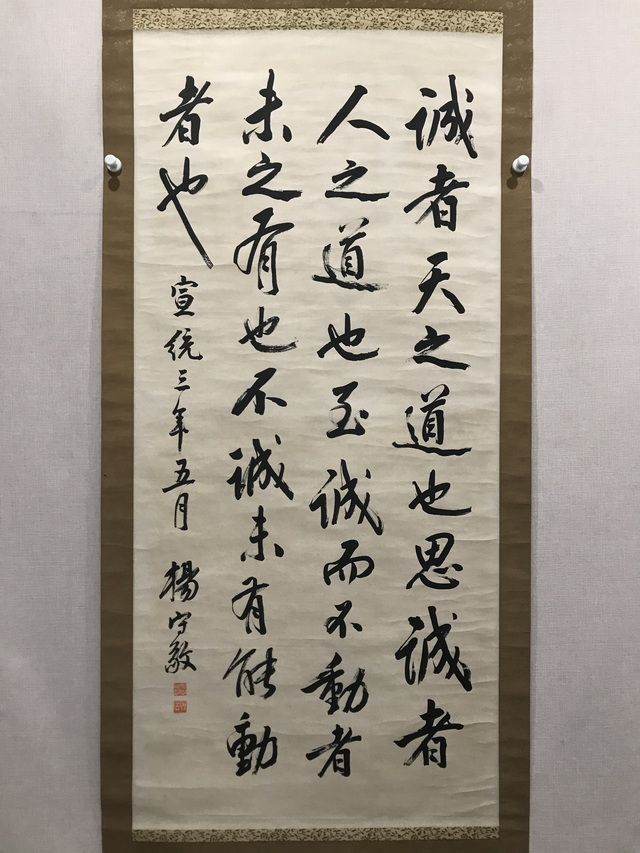 誠者天之道也思誠者
人之道也至誠而不動者
未之有也不誠未有能動
者也
宣統三年五月 楊守敬